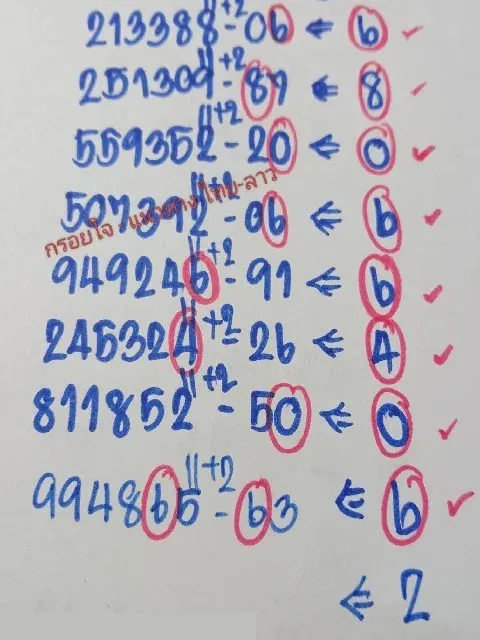 213388 +2 - 06 ⇐ 6 ✓
251309 +2 - 87 ⇐ 8 ✓
559352 +2 - 20 ⇐ 0 ✓
507392 +2 - 06 ⇐ 6 ✓
กรอยใจ แนวทางไทย-ลาว
949246 +2 - 91 ⇐ 6 ✓
245324 +2 - 26 ⇐ 4 ✓
811852 +2 - 50 ⇐ 0 ✓
994865 +2 - 63 ⇐ 6 ✓
⇐ 2